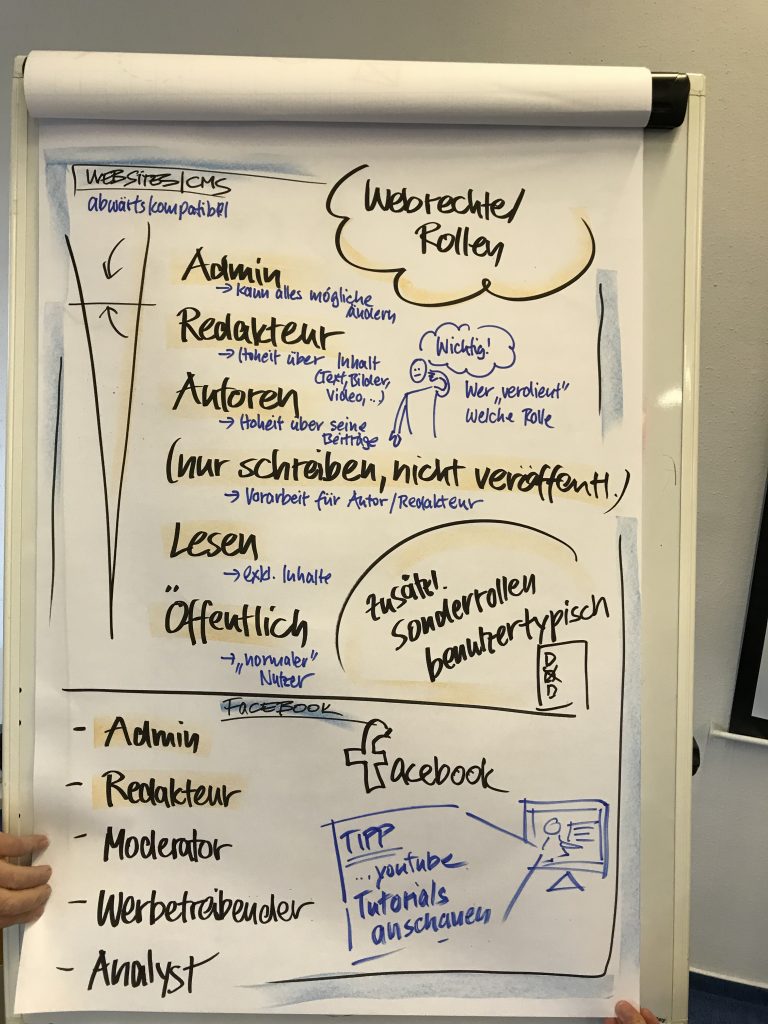 WEBSITES/CMS
abwärtskompatibel
Webrechte/
Rollen
Admin
→ kann alles mögliche
ändern
Redakteur
→ Hoheit über Inhalt
(Text, Bilder,
Video, ..)
Wichtig!
Wer „verdient"
welche Rolle
Autoren
→ Hoheit über seine
Beiträge
(nur schreiben, nicht veröffentl.)
→ Vorarbeit für Autor/Redakteur
Lesen
→ exkl. Inhalte
Öffentlich
→ „normaler"
Nutzer
zusätzl.
Sonderrollen
benutzertypisch
FACEBOOK
- Admin
- Redakteur
- Moderator
- Werbetreibender
- Analyst
facebook
TIPP
...youtube
Tutorials
anschauen